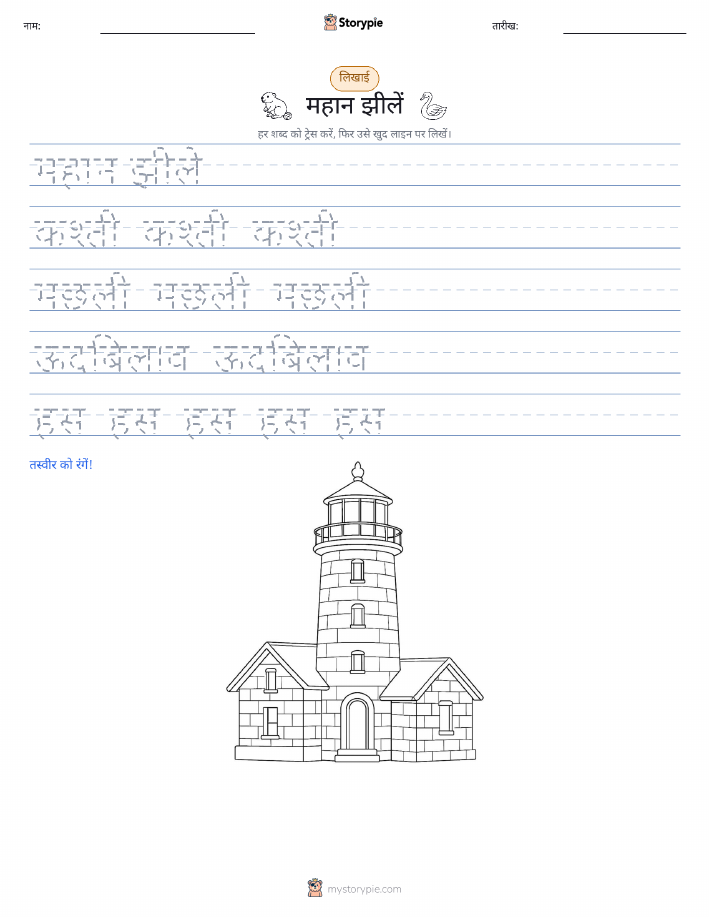 नाम:
Storypie
तारीख:
लिखाई
महान झीलें
हर शब्द को ट्रेस करें, फिर उसे खुद लाइन पर लिखें।
महान झीले
कश्ती कश्ती कश्ती
मछली मछली मछली
ऊदबिलाव ऊदबिलाव
हस हस हस हस हस
तस्वीर को रंगें!
mystorypie.com